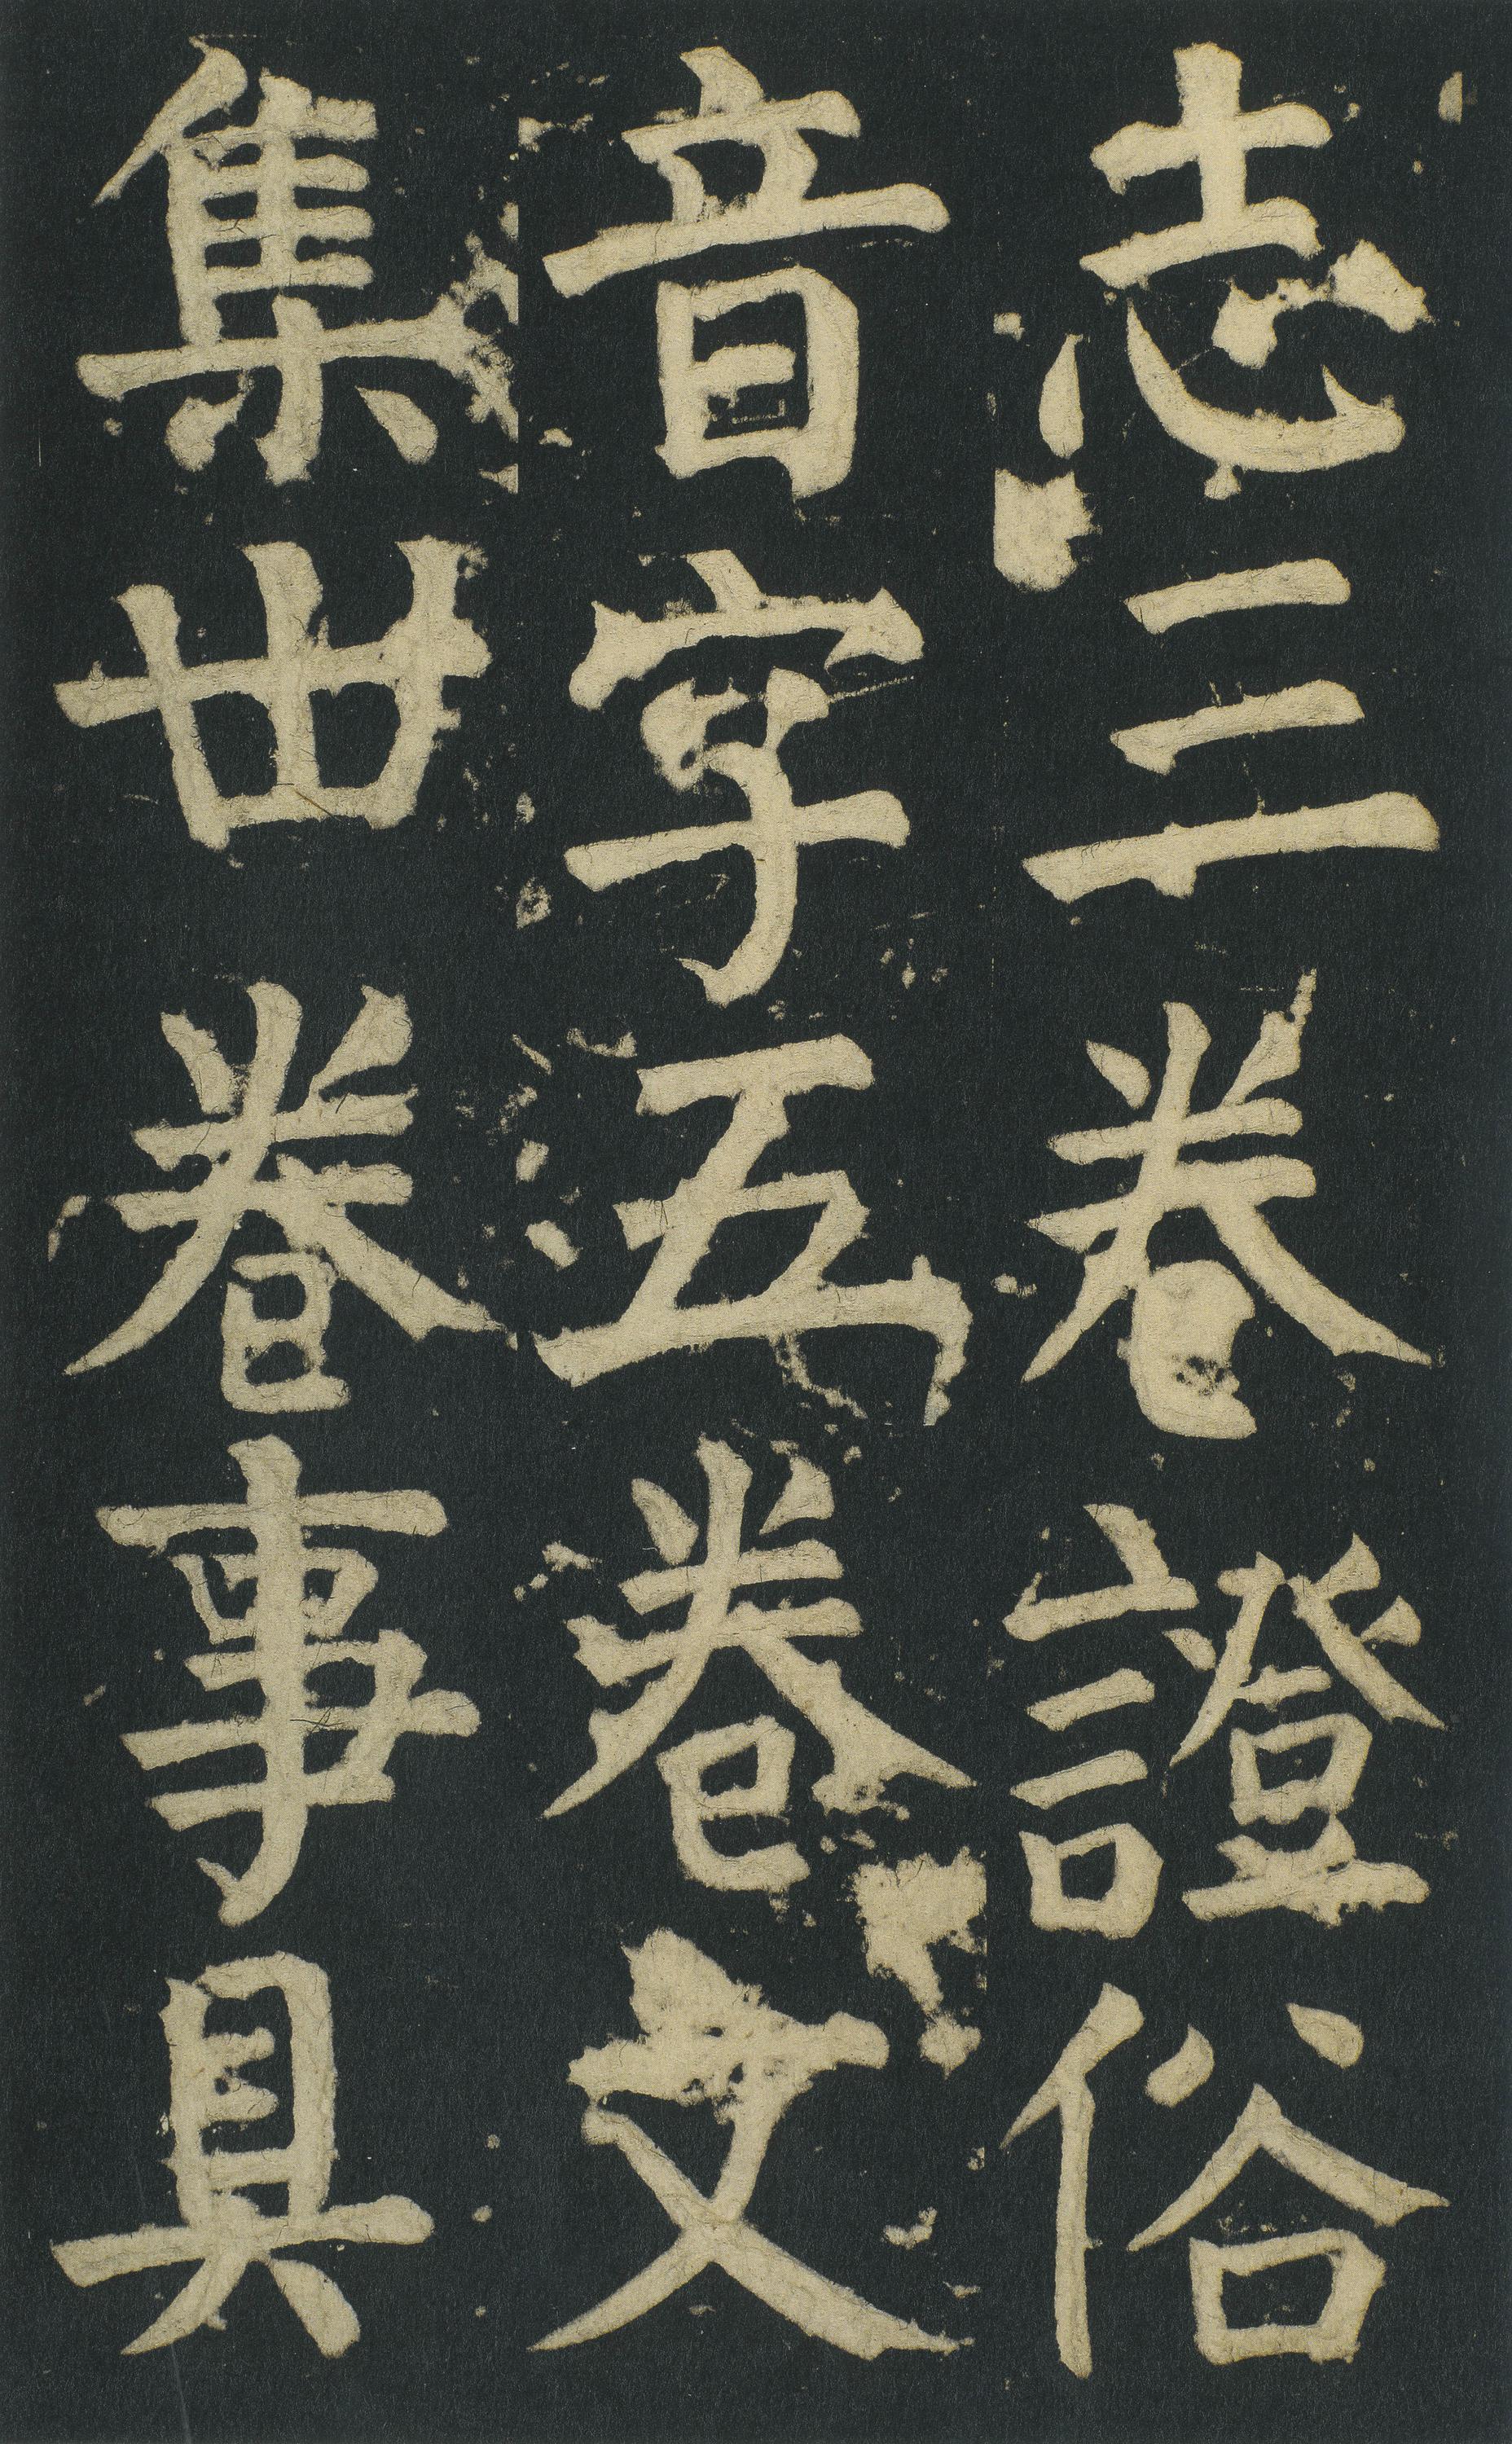 志三卷證俗
音字五卷文
集卅卷事具